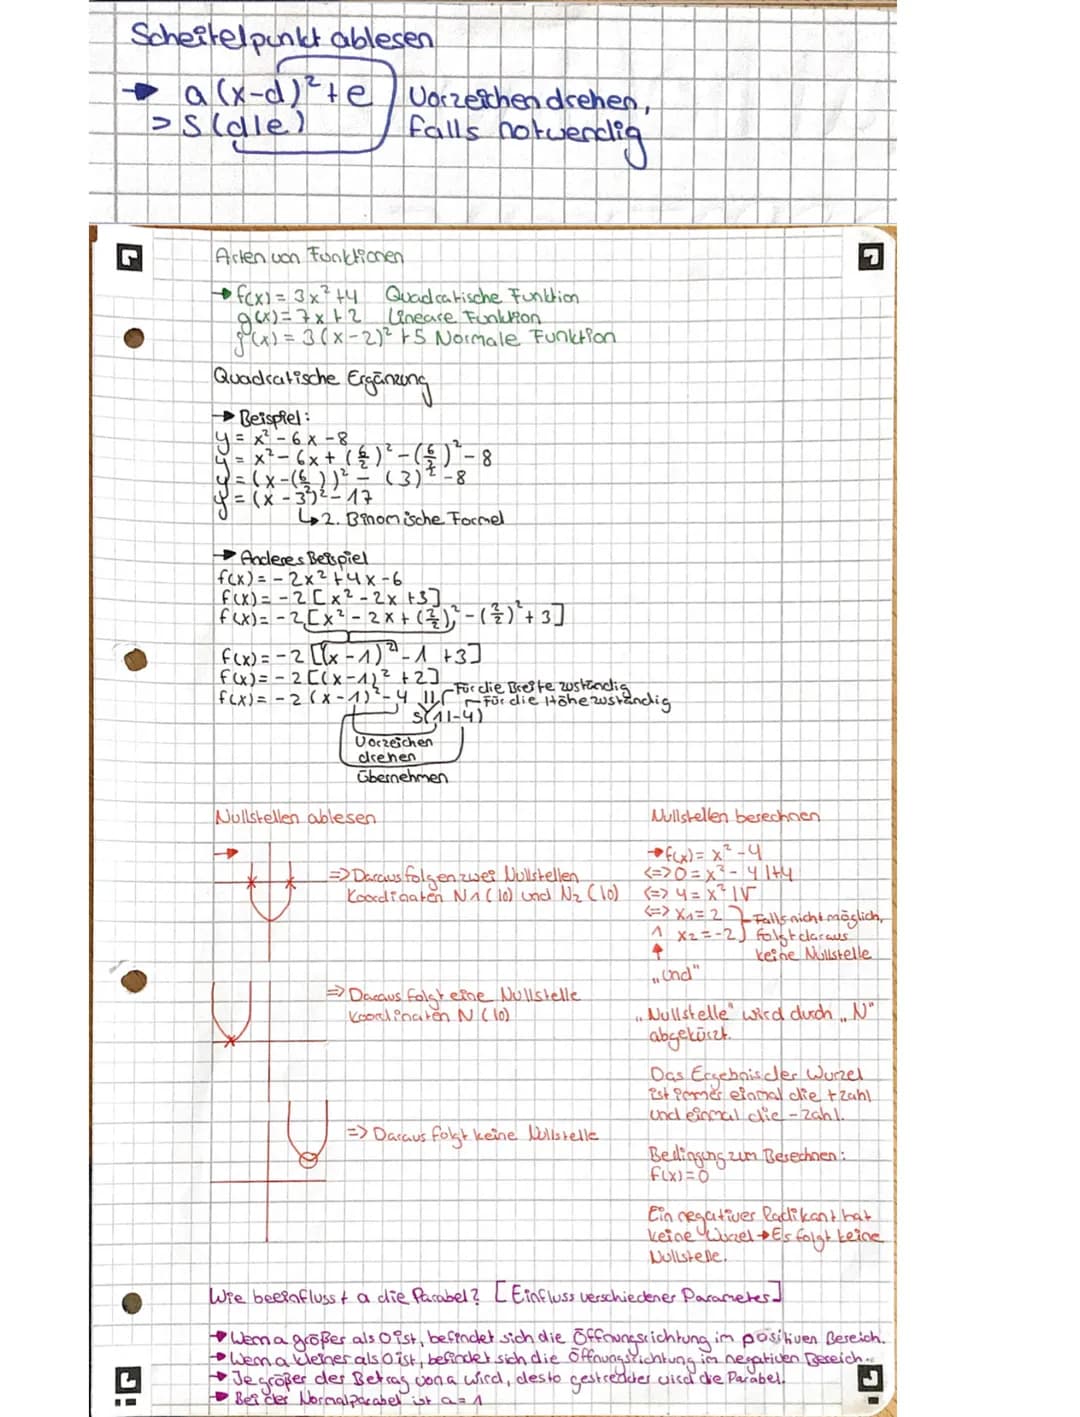 Scheitelpunkt ablesen
→ a(x-d)²+e Vorzeichen drehen,
> S(d|e) falls notwendig
Arten von Funktionen
→ f(x) = 3x²+4 Quadratische Funktion
g(x) = 7x+2 Lineare Funktion
f(x) = 3(x-2)²+5 Normale Funktion
Quadratische Ergänzung
→ Beispiel:
y = x² - 6x - 8
y = x² - 6x + (6/2)² - (6/2)² - 8
y = (x-(6/2))² - (3)² - 8
y = (x-3)² - 17
↳ 2. Binomische Formel
→ Anderes Beispiel
f(x) = -2x²+4x-6
f(x) = -2[x²-2x+3]
f(x) = -2[x²-2x+(2/2)²-(2/2)²+3]
f(x) = -2[(x-1)²-1+3]
f(x) = -2[(x-1)²+2]
Für die Breite zuständig
f(x) = -2(x-1)²-4 Für die Höhe zuständig
S(1|-4)
Vorzeichen
drehen
Übernehmen
Nullstellen ablesen
→
=> Daraus folgen zwei Nullstellen
Koordinaten N1( |0) und N2( |0)
=> Daraus folgt eine Nullstelle
Koordinaten N( |0)
=> Daraus folgt keine Nullstelle
Nullstellen berechnen
→ f(x) = x²-4
<=> 0 = x²-4 |+4
<=> 4 = x² |√
<=> x1 = 2 Falls nicht möglich,
∧ x2 = -2 folgt daraus
keine Nullstelle
„und"
„Nullstelle" wird durch „N"
abgekürzt.
Das Ergebnis der Wurzel
ist immer einmal die + zahl
und einmal die - zahl.
Bedingung zum Berechnen:
f(x)=0
Ein negativer Radikant hat
keine Wurzel → Es folgt keine
Nullstelle.
Wie beeinflusst a die Parabel? [Einfluss verschiedener Parameter]
→ Wenn a größer als 0 ist, befindet sich die Öffnungsrichtung im positiven Bereich.
→ Wenn a kleiner als 0 ist, befindet sich die Öffnungsrichtung im negativen Bereich.
→ Je größer der Betrag von a wird, desto gestreckter wird die Parabel.
→ Bei der Normalparabel ist a = 1